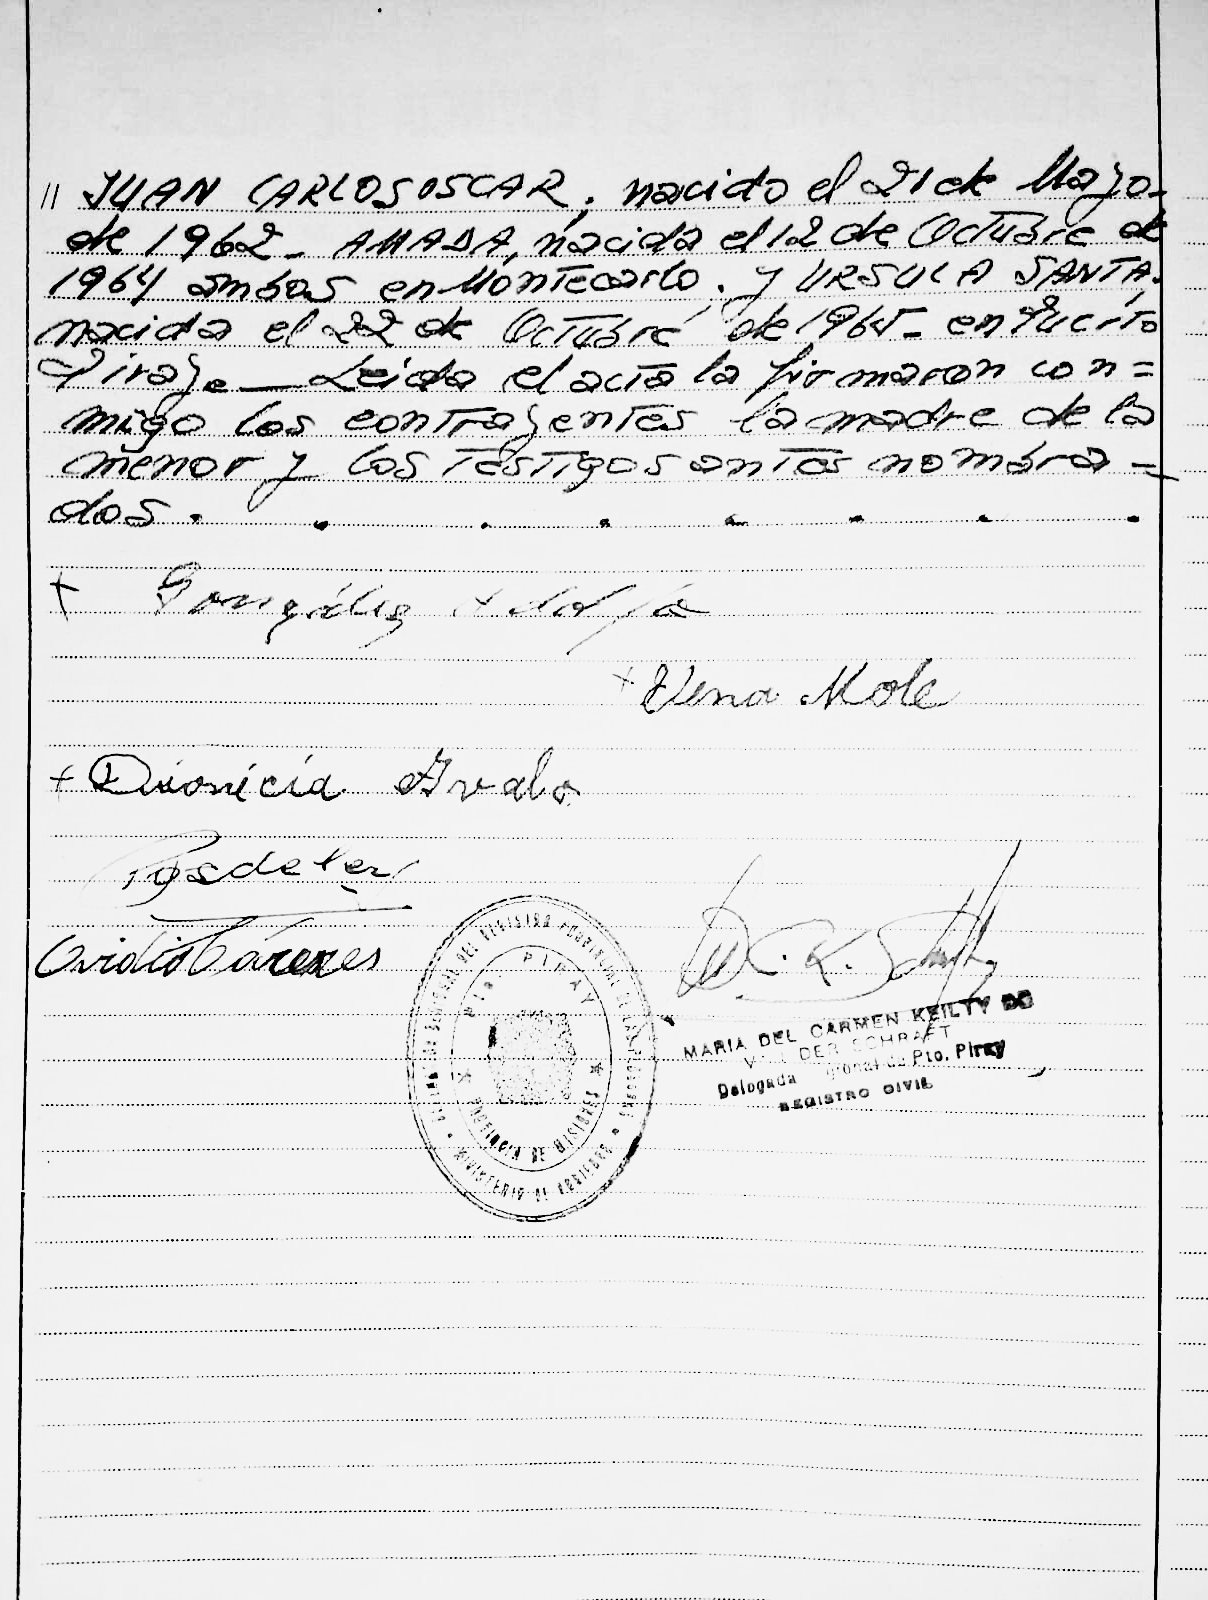 // JUAN CARLOS OSCAR, nacido el 21 de Mayo-
de 1962- AMADA, nacida el 12 de Octubre de
1964 ambos en Montecarlo. y URSULA SANTA.
nacida el 22 de Octubre de 1965- en Pucrto
Piray. — Leida el acta la firmaron con=
migo los contrayentes la madre de la
menor y los testigos antes nombra =
dos . . . . . . . .
+ González Adolfo
+ Elena Mole
+ Dionicia Avalo
Ovidio Cáceres
PIRAY
PROVINCIA DE MISIONES
MINISTERIO DE GOBIERNO
MARIA DEL CARMEN KEILTY DE
VAN DER SCHRAFT
Delegada de Pto. Piray
REGISTRO CIVIL